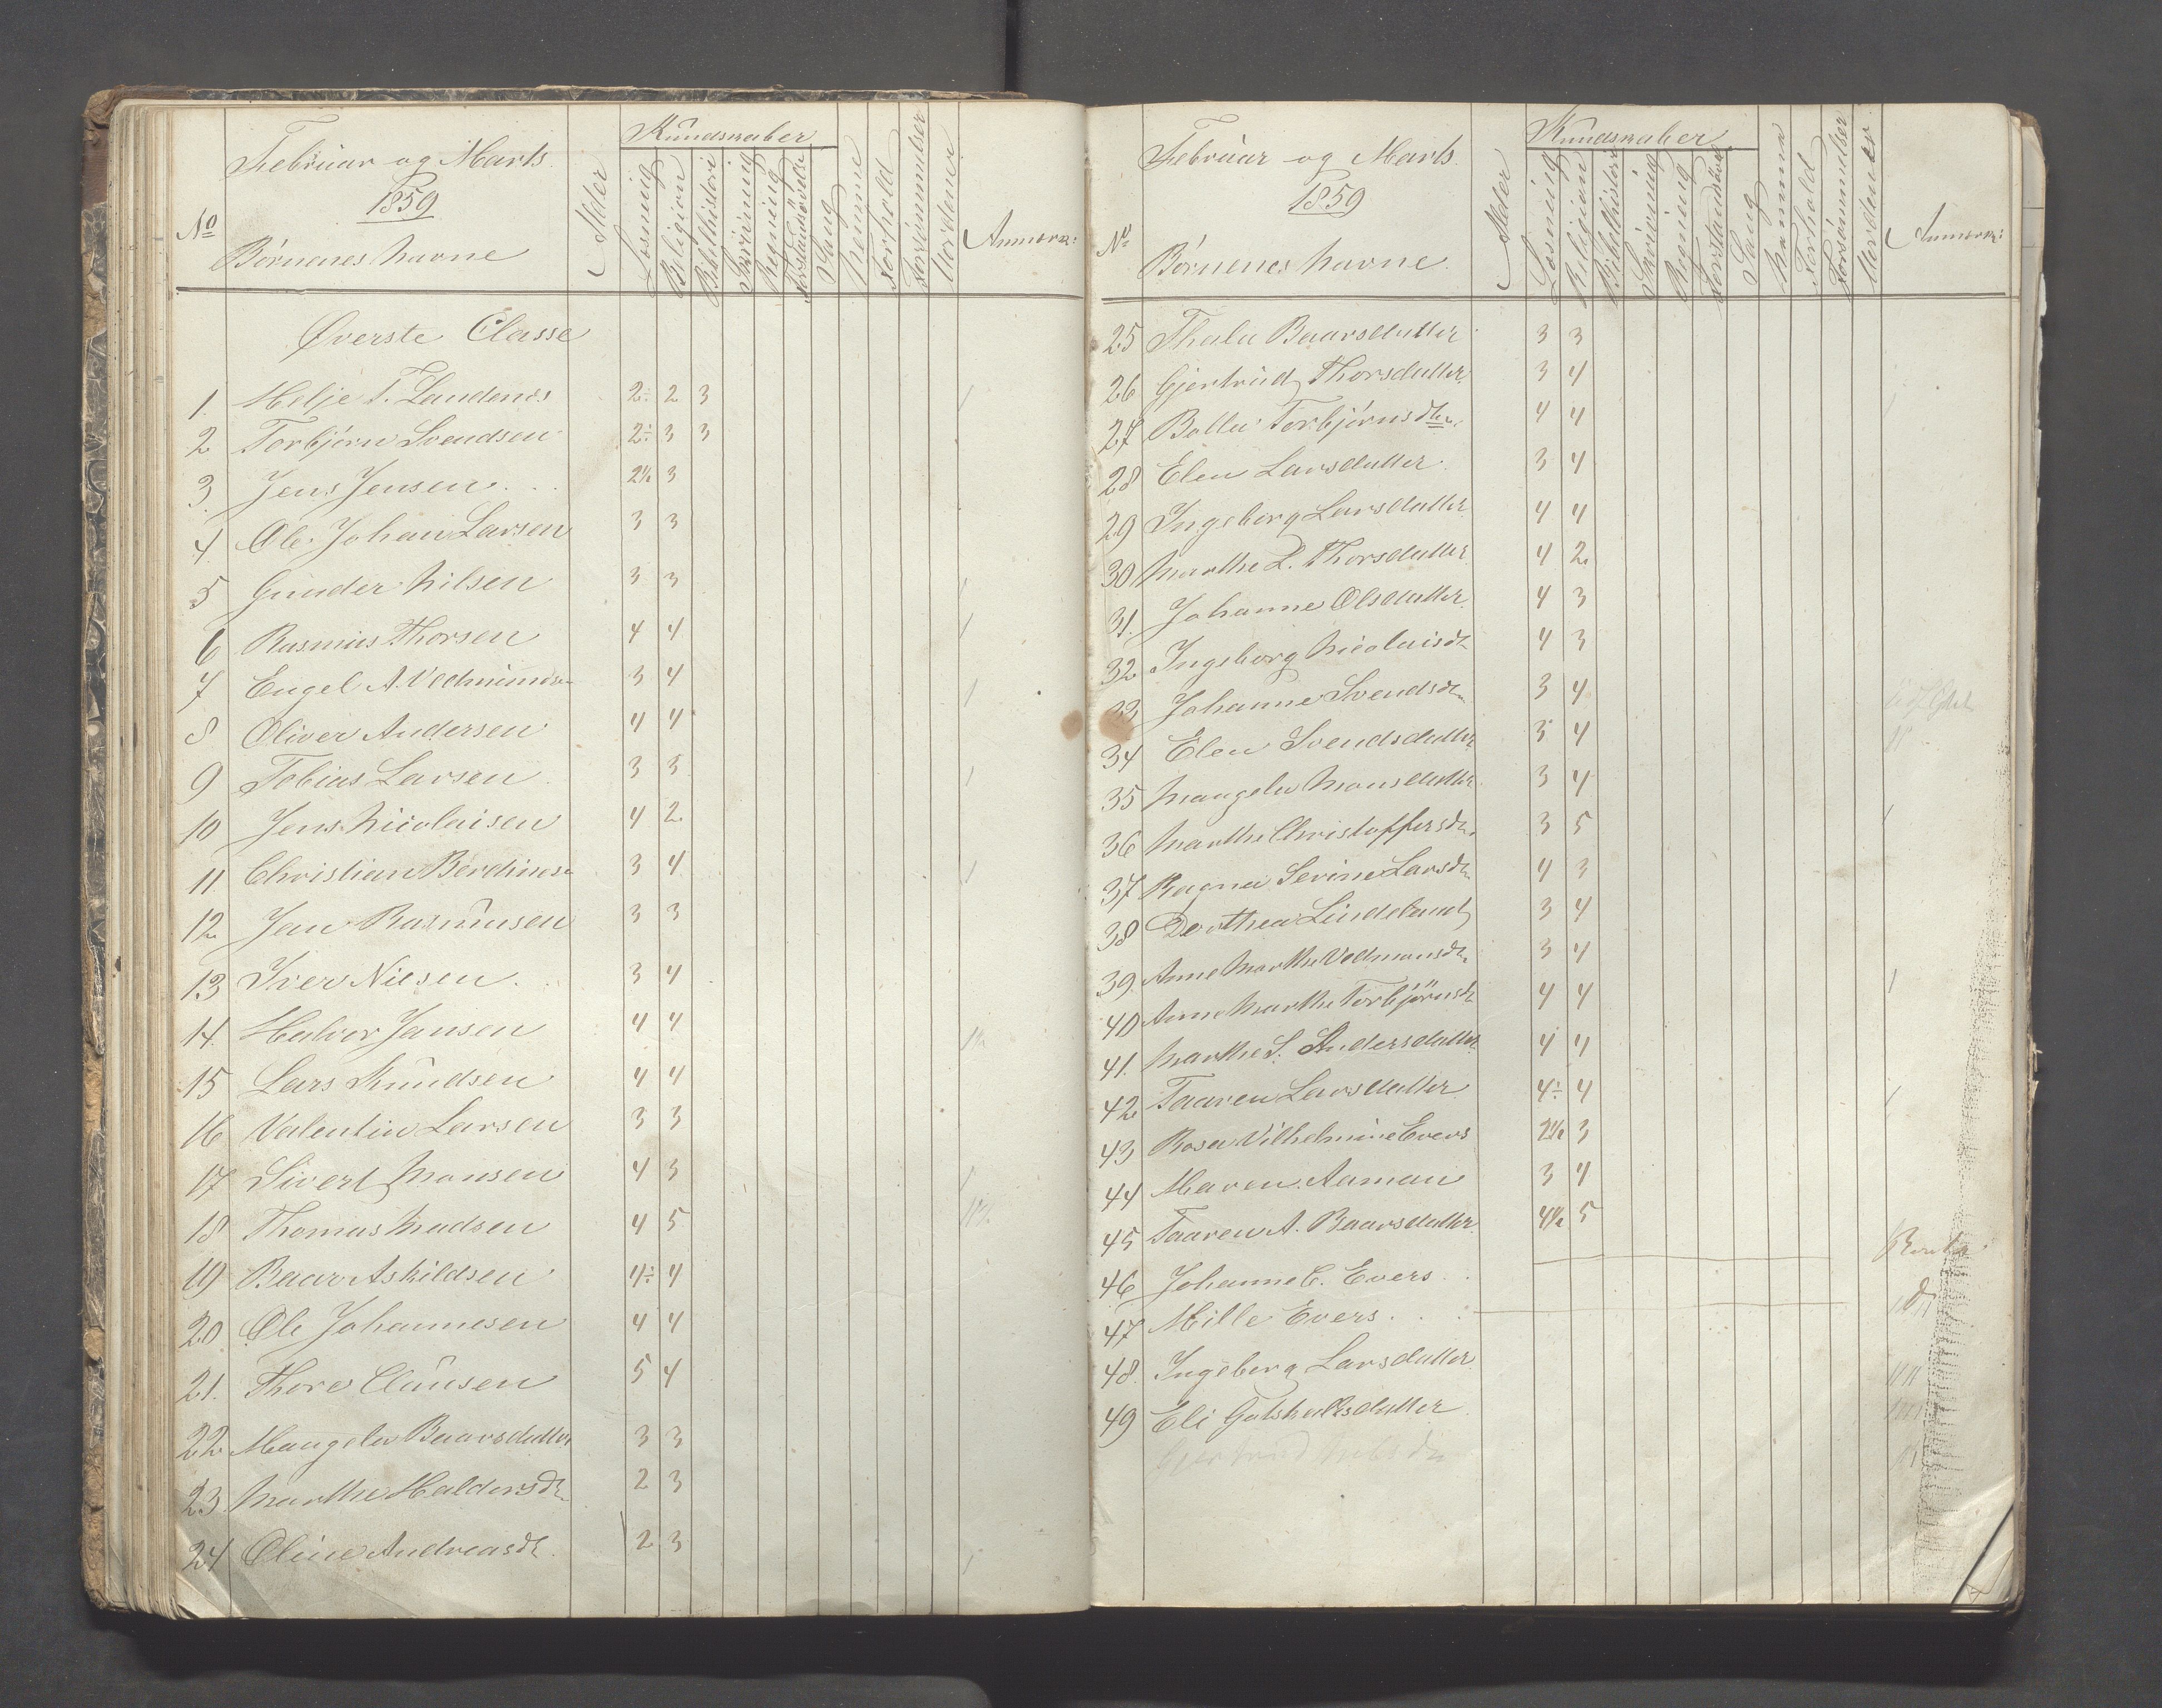 Februar og Marts
1859
No
Børnenes Navne
Alder
Kundskaber
Læsning
Religion
Bibelhistori
Skrivning
Regning
Forstandsøvelse
Sang
Nemme
Forhold
Forsømmelser
Mødende
Anmærk:
Øverste Classe
1. Helje T. Landenes 2÷ 2 3
2 Torbjørn Svendsen 2÷ 3 3
3 Jens Jensen 2½ 3
4 Ole Johan Larsen 3 3
5 Gunder Nilsen 3 3
6 Rasmus Thorsen 4 4
7 Engel A. 3 4
8 Oliver Andersen 4 4
9 Tobias Larsen 3 3
10 Jens Nicolaisen 4 2
11 Christian 3 4
12 Jan Rasmusen 3 3
13 Iver Nilsen 3 4
14. Halvor Jansen 4 4
15 Lars Knudsen 4 4
16 Valentin Larsen 3 3
17 Sivert Monsen 4 3
18 Thomas Madsen 4 5
19 Baar Askildsen 4÷ 4
20 Ole Johannesen 4 4
21. Thore Clausen 5 4
22 Mangela Baarsdatter 3 3
23 Marthe Haldorsdr 2 3
24 Oline Andreasdr 2 3
Februar og Marts
1859
No
Børnenes Navne
Alder
Kundskaber
Læsning
Religion
Bibelhistori
Skrivning
Regning
Forstandsøvel
Sang
Nemme
Forhold
Forsømmelser
Anmærk:
25 Thala Baarsdatter 3 3
26 Gjertrud Thorsdatter 3 4
27 Torbjørnsdtr 4 4
28 Elen Larsdatter 3 4
29 Ingeborg Larsdatter 4 4
30 Marthe L. Thorsdatter 4 2
31. Johanne Olsdatter 4 3
32 Ingeborg Nicolaisdr 4 3
33 Johanne Svendsdr 3 4
34 Elen Svendsdatter 3 4
35 Mangela Monsdatter 3 4
36 Marthe Christoffersdr 3 5
37 Ragna Serine Larsdr 4 3
38 Dorthea Lindeland 3 4
39 Anne Marthe 3 4
40 Anne Marthe Torbjørnsdr 4 4
41. Marthe S. Andersdatter 4 4
42 Taaren Larsdatter 4÷ 4
43 Rosa Vilhelmine Evers 2½ 3
44 Maren Aaman 3 4
45 Taaren A. Baarsdatter 4½ 5
46 Johanne C. Evers
47 Mille Evers
48. Ingeborg Larsdatter
49 Eli Gotskalksdatter